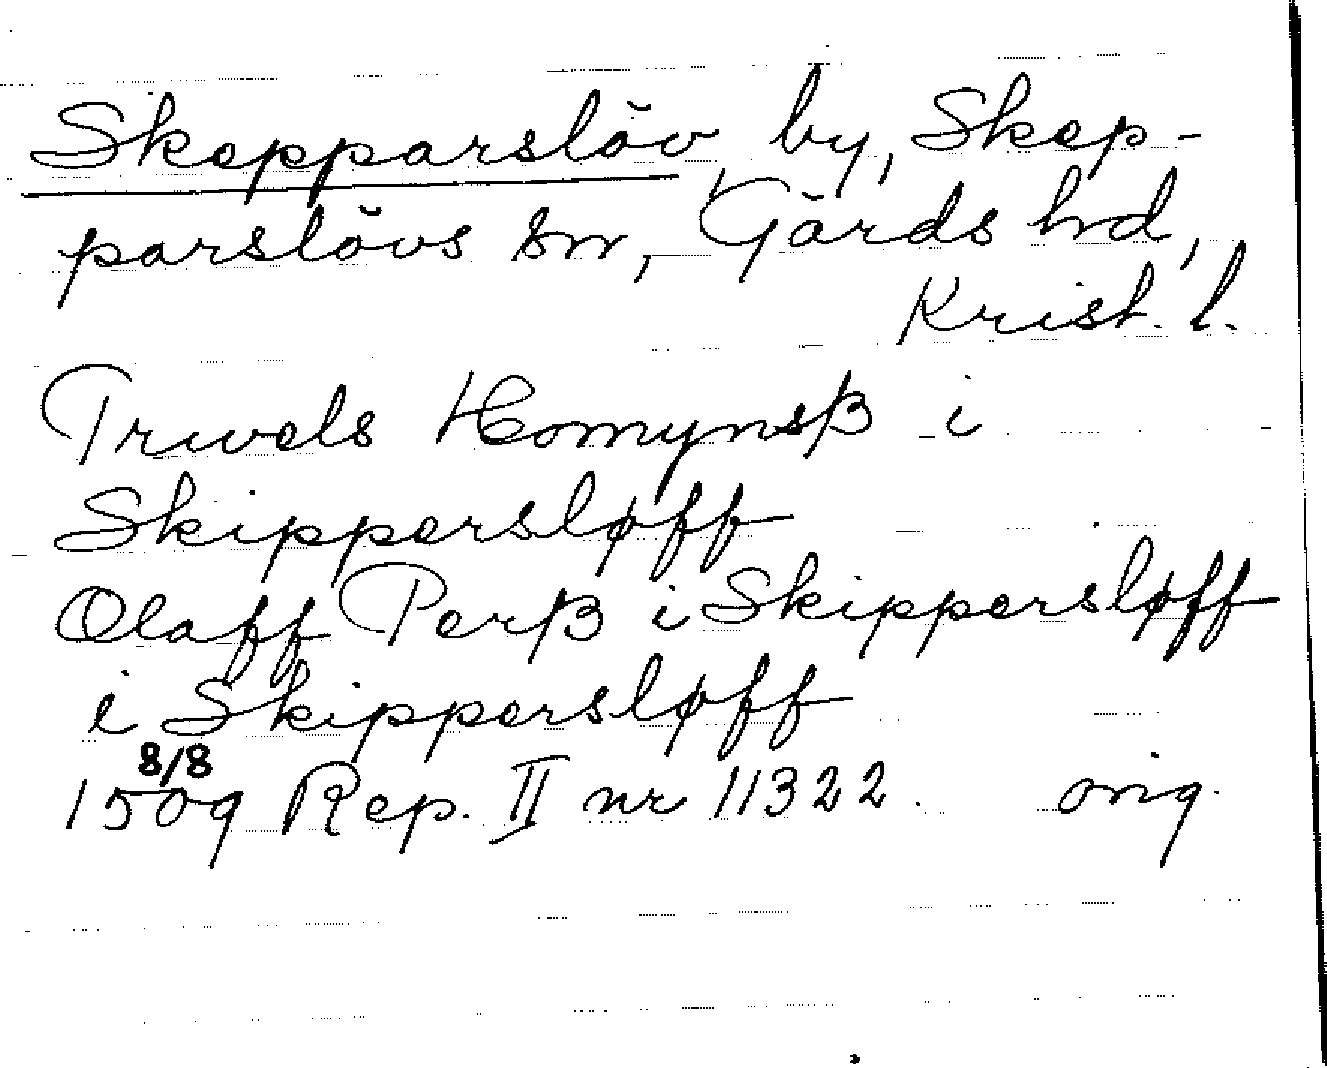 Skepparslöv by, Skep-
parslövs sn, Gärds hd,
Krist. l.
Truels Homynsß i
Skippersløff
Olaff Perß i Skippersløff
i Skippersløff
8/8
1509 Rep. II nr 11322. orig.